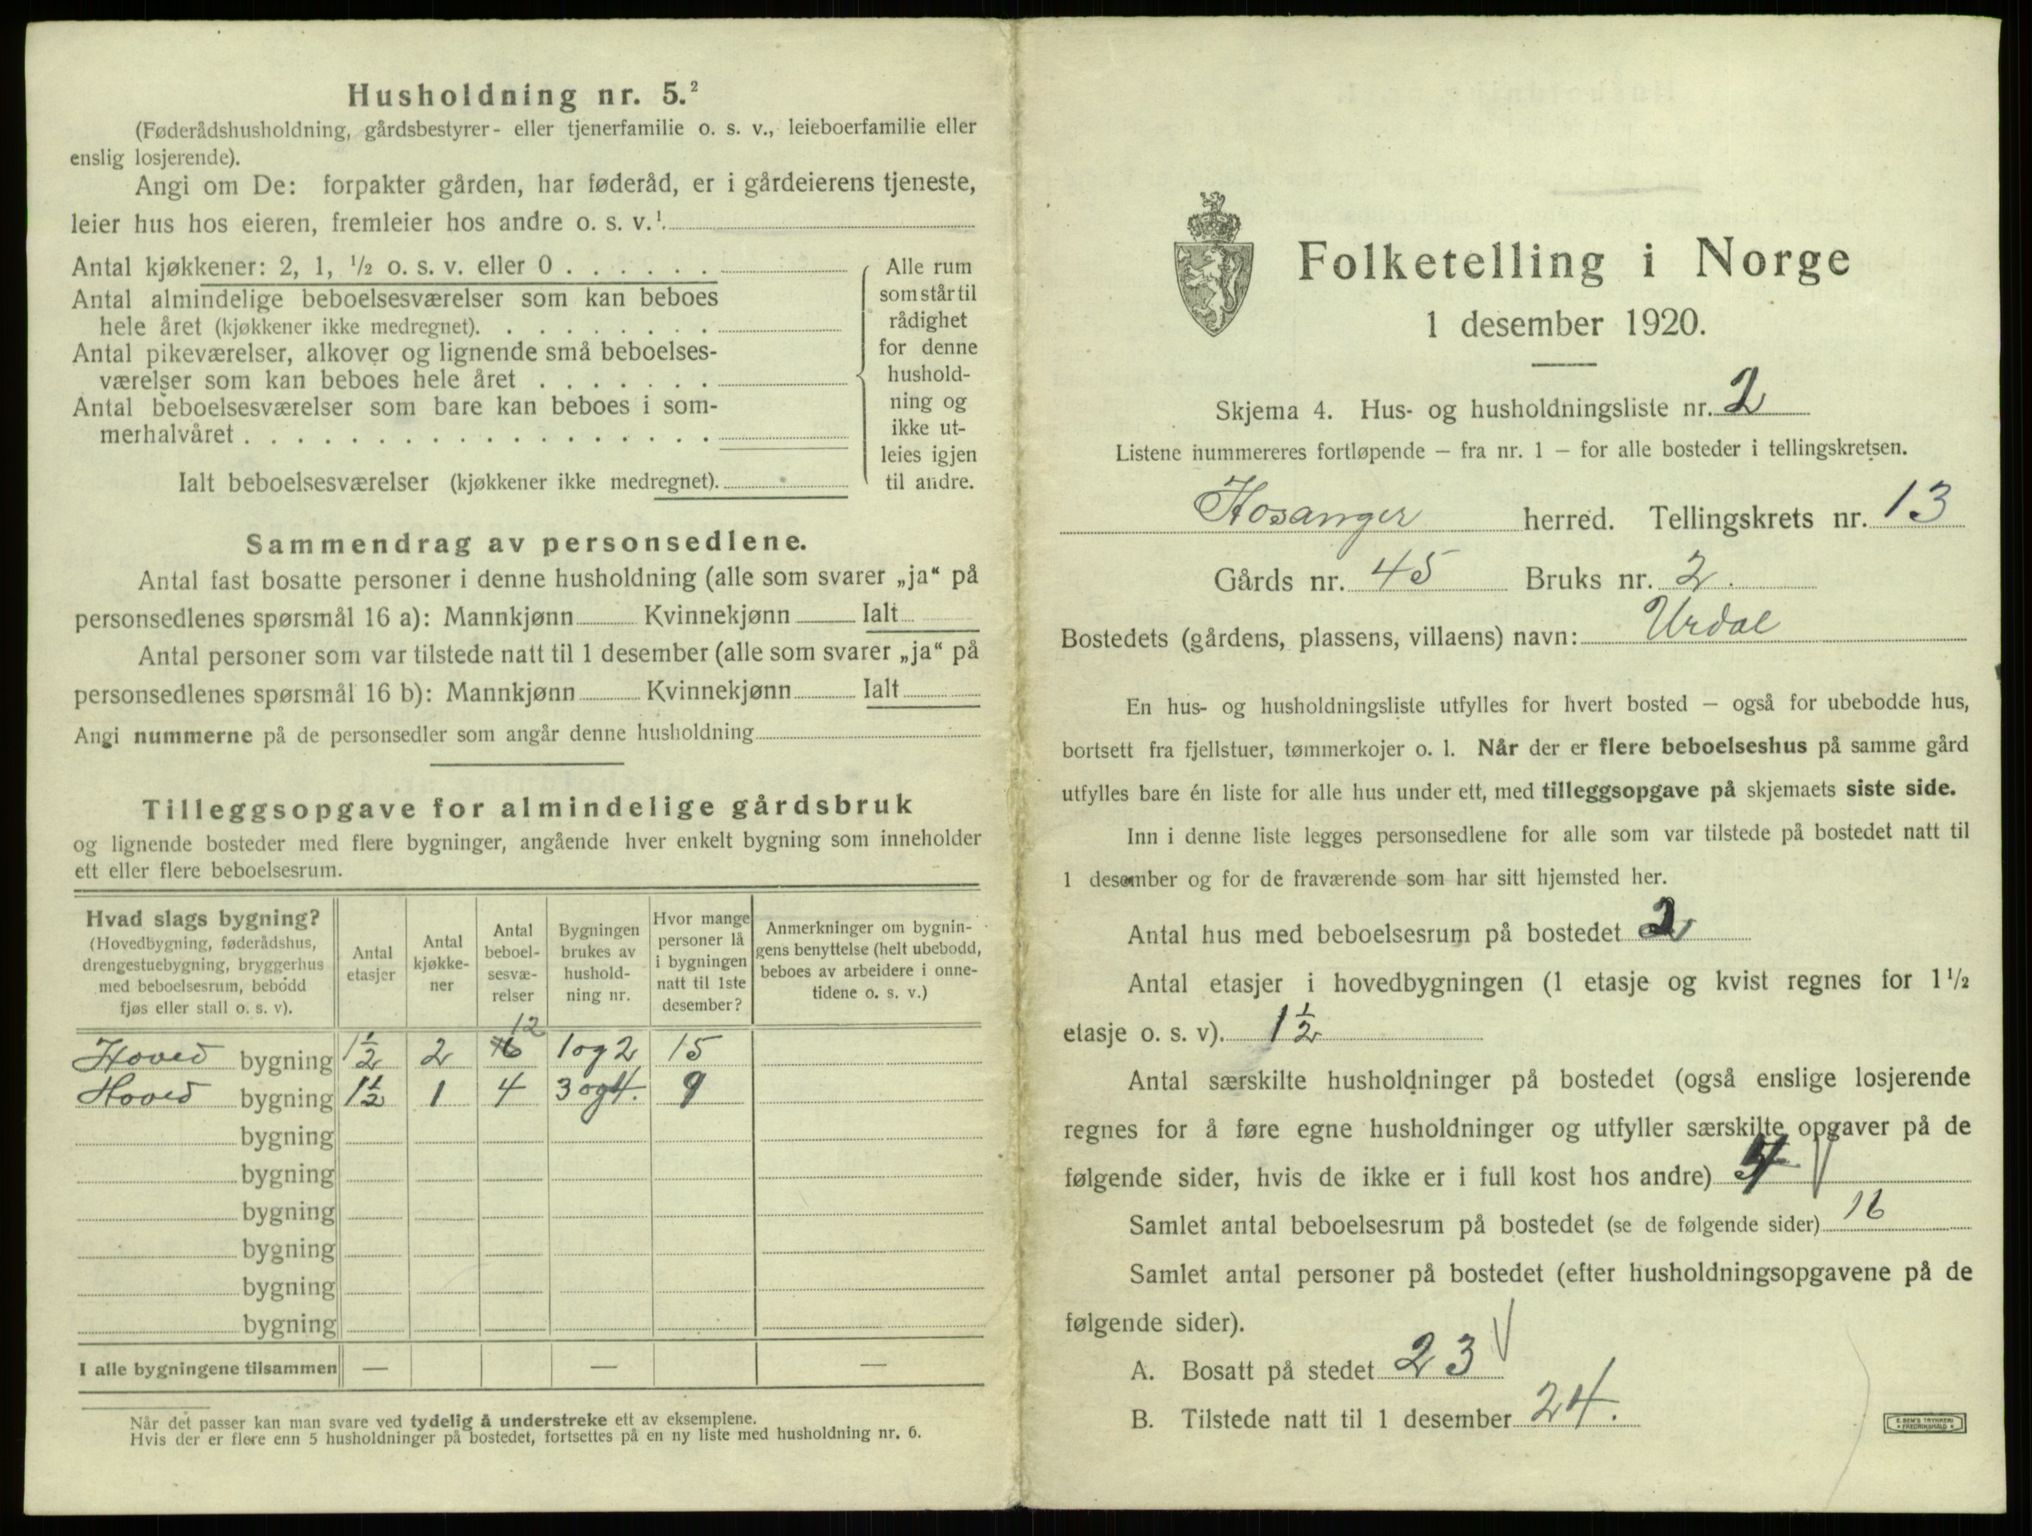 Husholdning nr. 5.²
(Føderådshusholdning, gårdsbestyrer- eller tjenerfamilie o. s. v., leieboerfamilie eller
enslig losjerende).
Angi om De: forpakter gården, har føderåd, er i gårdeierens tjeneste,
leier hus hos eieren, fremleier hos andre o. s. v.¹
Antal kjøkkener: 2, 1, ½ o. s. v. eller 0 . . . . . .
Antal almindelige beboelsesværelser som kan beboes
hele året (kjøkkener ikke medregnet). . . . . . . . .
Antal pikeværelser, alkover og lignende små beboelses-
værelser som kan beboes hele året . . . . . . .
Antal beboelsesværelser som bare kan beboes i som-
merhalvåret . . . . . . . . . . . . . . . . . .
Ialt beboelsesværelser (kjøkkener ikke medregnet).
Alle rum
som står til
rådighet
for denne
hushold-
ning og
ikke ut-
leies igjen
til andre.
Sammendrag av personsedlene.
Antal fast bosatte personer i denne husholdning (alle som svarer „ja“ på
personsedlenes spørsmål 16 a): Mannkjønn Kvinnekjønn Ialt
Antal personer som var tilstede natt til 1 desember (alle som svarer „ja“ på
personsedlenes spørsmål 16 b): Mannkjønn Kvinnekjønn Ialt
Angi nummerne på de personsedler som angår denne husholdning
Tilleggsopgave for almindelige gårdsbruk
og lignende bosteder med flere bygninger, angående hver enkelt bygning som inneholder
ett eller flere beboelsesrum.
Hvad slags bygning?
(Hovedbygning, føderådshus,
drengestuebygning, bryggerhus
med beboelsesrum, bebodd
fjøs eller stall o. s. v).
Antal
etasjer
Antal
kjøkke-
ner
Antal
beboel-
sesvæ-
relser
Bygningen
brukes av
hushold-
ning nr.
Hvor mange
personer lå
i bygningen
natt til 1ste
desember?
Anmerkninger om bygnin-
gens benyttelse (helt ubebodd,
beboes av arbeidere i onne-
tidene o. s. v.)
12
Hoved bygning 1½ 2 1 og 2 15
Hoved bygning 1½ 1 4 3 og 4. 9
bygning
bygning
bygning
bygning
bygning
bygning
I alle bygningene tilsammen — — —
Når det passer kan man svare ved tydelig å understreke ett av eksemplene.
Hvis der er flere enn 5 husholdninger på bostedet, fortsettes på en ny liste med husholdning nr. 6.
Folketelling i Norge
1 desember 1920.
Skjema 4. Hus- og husholdningsliste nr. 2
Listene nummereres fortløpende – fra nr. 1 – for alle bosteder i tellingskretsen.
Hosanger herred. Tellingskrets nr. 13
Gårds nr. 45 Bruks nr. 2.
Bostedets (gårdens, plassens, villaens) navn: Urdal
En hus- og husholdningsliste utfylles for hvert bosted – også for ubebodde hus,
bortsett fra fjellstuer, tømmerkojer o. l. Når der er flere beboelseshus på samme gård
utfylles bare én liste for alle hus under ett, med tilleggsopgave på skjemaets siste side.
Inn i denne liste legges personsedlene for alle som var tilstede på bostedet natt til
1 desember og for de fraværende som har sitt hjemsted her.
Antal hus med beboelsesrum på bostedet 2
Antal etasjer i hovedbygningen (1 etasje og kvist regnes for 1½
etasje o. s. v). 1½
Antal særskilte husholdninger på bostedet (også enslige losjerende
regnes for å føre egne husholdninger og utfyller særskilte opgaver på de
følgende sider, hvis de ikke er i full kost hos andre) 4
Samlet antal beboelsesrum på bostedet (se de følgende sider) 16
Samlet antal personer på bostedet (efter husholdningsopgavene på de
følgende sider).
A. Bosatt på stedet 23
B. Tilstede natt til 1 desember 24.
E. SEM'S TRYKKERI
FREDRIKSHALD